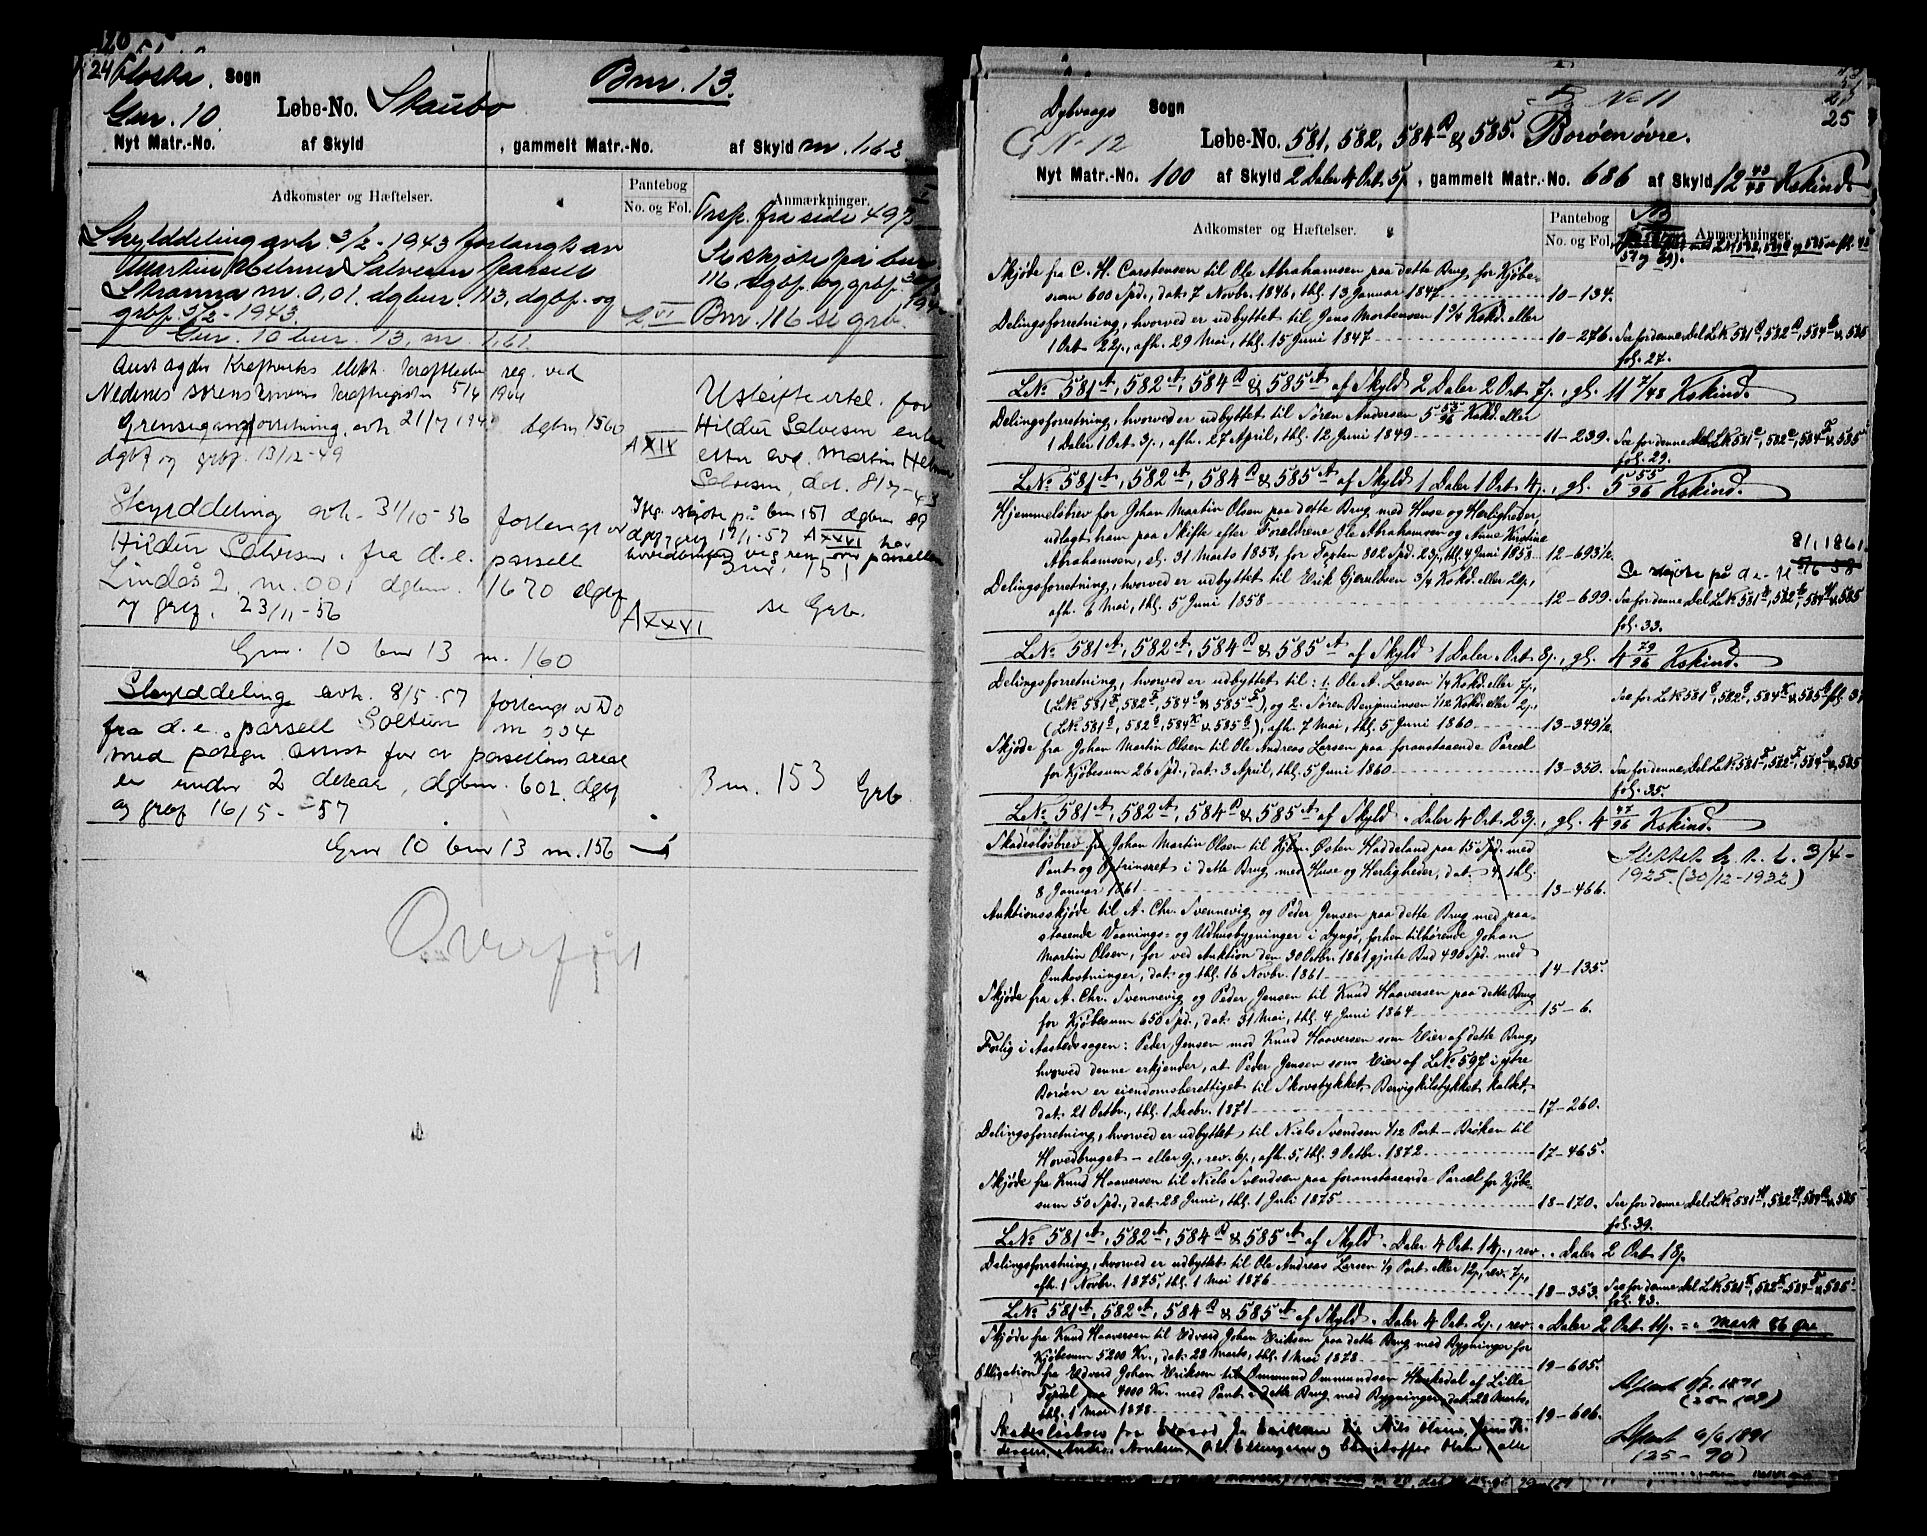 24 Flosta. Sogn
Bnr. 13.
Gnr. 10. Løbe-No. Skaubo
Nyt Matr.-No. af Skyld , gammelt Matr.-No. af Skyld m. 1,62
Adkomster og Hæftelser.
Pantebog
No. og Fol.
Anmærkninger.
Trsp. fra side 49
Skylddeling avh. 3/2-1943 forlangt av
Martin Helmer Salvesen parsell
Stranna m. 0,01. dgbnr. 113, dgbf. og
grbf. 3/2-1943.
Se skjøte på bnr
116, dgbf. og grbf.
Bnr. 116 se grb.
Gnr. 10 bnr. 13, m. 1,61
Aust agder Kraftverks elekt. kraftleder reg. ved
Nedenes sorenskriveri kraftregister 5/4 1944
Grensegangsforretning avh. 21/7 194 dgbnr. 1560
dgbf og grbf. 13/12-49
A XIV
Uskifteerkl. for
Hildur Salvesen enke
etter avd. Martin Helmer
Salvesen, d.d. 8/7-43
Skylddeling avh. 31/10-56 forlangt av
Hildur Salvesen fra d.e. parsell
Lindås 2 m. 001 dgbnr. 1670 dgbf
og grbf. 23/11-56
Ifg. skjøte på bnr 151 dgbnr 89
A XXVI
Bnr. 151
se Grb.
A XXVI
Gnr. 10 bnr 13 m. 160
Skylddeling avh. 8/5-57 forlangt av Do
fra d.e. parsell Soltun m 004
med påtegn. om at parsellens areal
er under 2 dekar, dgbnr. 602 dgbf
og grbf 16/5-57
Bnr. 153 Grb
Gnr 10 bnr 13 m. 156
Overført
25
Dybvaags Sogn
B No 11
G No 12
Løbe-No. 581, 582, 584 B & 585. Borøen øvre.
Nyt Matr.-No. 100 af Skyld 2 Daler 4 Ort 5 β, gammelt Matr.-No. 686 af Skyld 12 43/48 Kskind.
Adkomster og Hæftelser.
Pantebog
No. og Fol.
Anmærkninger.
Skjøde fra C. H. Carstensen til Ole Abrahamsen paa dette Brug for Kjøbe-
sum 600 Spd., dat. 7 Novbr. 1846, thl. 13 Januar 1847 10-134.
Delingsforretning, hvorved er udbyttet til Jens Mortensen 1 3/4 Kskd. eller
1 Ort 22 β, afh. 29 Mai, thl. 15 Juni 1847 10-276. See for denne Del L№ 581 B, 582 B, 584 B & 585
fol. 27.
L№ 581 A, 582 A, 584 B & 585 A af Skyld 2 Daler 2 Ort 7 β, gl. 11 7/48 Kskind.
Delingsforretning, hvorved er udbyttet til Søren Andersen 5 53/96 Kskd. eller
1 Daler 1 Ort 3 β, afh. 27 April, thl. 12 Juni 1849 11-239. See for denne Del L№ 581 C, 582 C, 584 F & 585
fol. 29.
L№ 581 A, 582 A, 584 B & 585 A af Skyld 1 Daler 1 Ort 4 β, gl. 5 55/96 Kskind.
Hjemmelsbrev for Johan Martin Olsen paa dette Brug med Huse og Herligheder
udlagt ham paa Skifte efter Forældrene Ole Abrahamsen og Anne Kirstine
Abrahamsen, sl. 31 Marts 1858, for Taxten 802 Spd. 23 β, thl. 4 Juni 1858 12-693½.
Delingsforretning, hvorved er udbyttet til Erik Gjeruldsen 3/4 Kskd. eller 20 β,
afh. 6 Mai, thl. 5 Juni 1858 12-699. See for denne Del L№ 581 E, 582 E, 584 H & 585
fol. 33.
L№ 581 A, 582 A, 584 B & 585 A af Skyld 1 Daler - Ort 8 β, gl. 4 79/96 Kskind.
Delingsforretning, hvorved er udbyttet til: 1. Ole A. Larsen 1/4 Kskd. eller 7 β,
(L№ 581 F, 582 F, 584 J & 585 F), og 2. Søren Benjaminsen 1/12 Kskd. eller 2 β,
(L№ 581 G, 582 G, 584 K & 585 G), afh. 7 Mai, thl. 5 Juni 1860 13-349½.
Skjøde fra Johan Martin Olsen til Ole Andreas Larsen paa foranstaaende Parcel
for Kjøbesum 26 Spd., dat. 3 April, thl. 5 Juni 1860 13-350. See for denne Del L№ 581 F, 582 F, 584 J & 585
fol. 35.
L№ 581 A, 582 A, 584 B & 585 A af Skyld - Daler 4 Ort 23 β, gl. 4 47/96 Kskind.
Skadesløsbrev fra Johan Martin Olsen til Kjbm. Østen Haddeland paa 15 Spd. med
Pant og Opfrinsret i dette Brug med Huse og Herligheder, dat. 4, thl.
8 Januar 1861 13-466.
Slettet h. t. l. 3/4-
1925. (30/12-1932)
Auktionsskjøde til A. Chr. Svennevig og Peder Jensen paa dette Brug med paa-
staaende Vaanings- og Udhusbygninger i Lyngø, forhen tilhørende Johan
Martin Olsen, for ved Auktion den 30 Octbr. 1861 gjorte Bud 490 Spd. med
Omkostninger, dat. og thl. 16 Novbr. 1861 14-135.
Skjøde fra A. Chr. Svennevig og Peder Jensen til Knud Haaversen paa dette Brug
for Kjøbesum 650 Spd., dat. 31 Mai, thl. 4 Juni 1864 15-6.
Forlig i Aastedssagen: Peder Jensen mod Knud Haaversen som Eier af dette Brug,
hvorved denne erkjender, at Peder Jensen som Eier af L№ 597 i ytre
Borøen er eiendomsberettiget til Skovstykket, Bervigkilstykket kaldet,
dat. 21 Octbr., thl. 1 Decbr. 1871 17-260.
Delingsforretning, hvorved er udbyttet, til Niels Svendsen 1/12 Part - Brøken til
Hovedbruget - eller 9 β, rev. 6 β, afh. 5, thl. 9 Octbr. 1872 17-465.
Skjøde fra Knud Haaversen til Niels Svendsen paa foranstaaende Parcel for Kjøbe-
sum 50 Spd., dat. 28 Juni, thl. 1 Juli 1875 18-170. See for denne Del L№ 581 H, 582 H, 584 & 585
fol. 39.
L№ 581 A, 582 A, 584 B & 585 A af Skyld - Daler 4 Ort 14 β, rev. - Daler 2 Ort 18 β.
Delingsforretning, hvorved er udbyttet til Ole Andreas Larsen 1/9 Part eller 12 β, rev. 7 β,
afh. 1 Novbr. 1875, thl. 1 Mai 1876 18-353. See for denne Del L№ 581 K, 582 K, 584 & 585
fol. 43.
L№ 581 A, 582 A, 584 B & 585 A af Skyld - Daler 4 Ort 2 β, rev. - Daler 2 Ort 11 β. = - Mark 86 Øre
Skjøde fra Knud Haaversen til Edvard Johan Eriksen paa dette Brug med Bygninger for
Kjøbesum 5200 Kr., dat. 28 Marts, thl. 1 Mai 1878 19-605.
Obligation fra Edvard Johan Eriksen til Ommund Ommundsen Haskedal af Lille
Topdal paa 4000 Kr. med Pant i dette Brug med Bygninger, dat. 28 Marts,
thl. 1 Mai 1878 19-606.
Aflæst 1/7 1891
(25-109)
Skadesløsbrev fra Edvard Joh Eriksen til Niels Olsen, Jens K.
Aflæst 6/6 1891
(25-90)